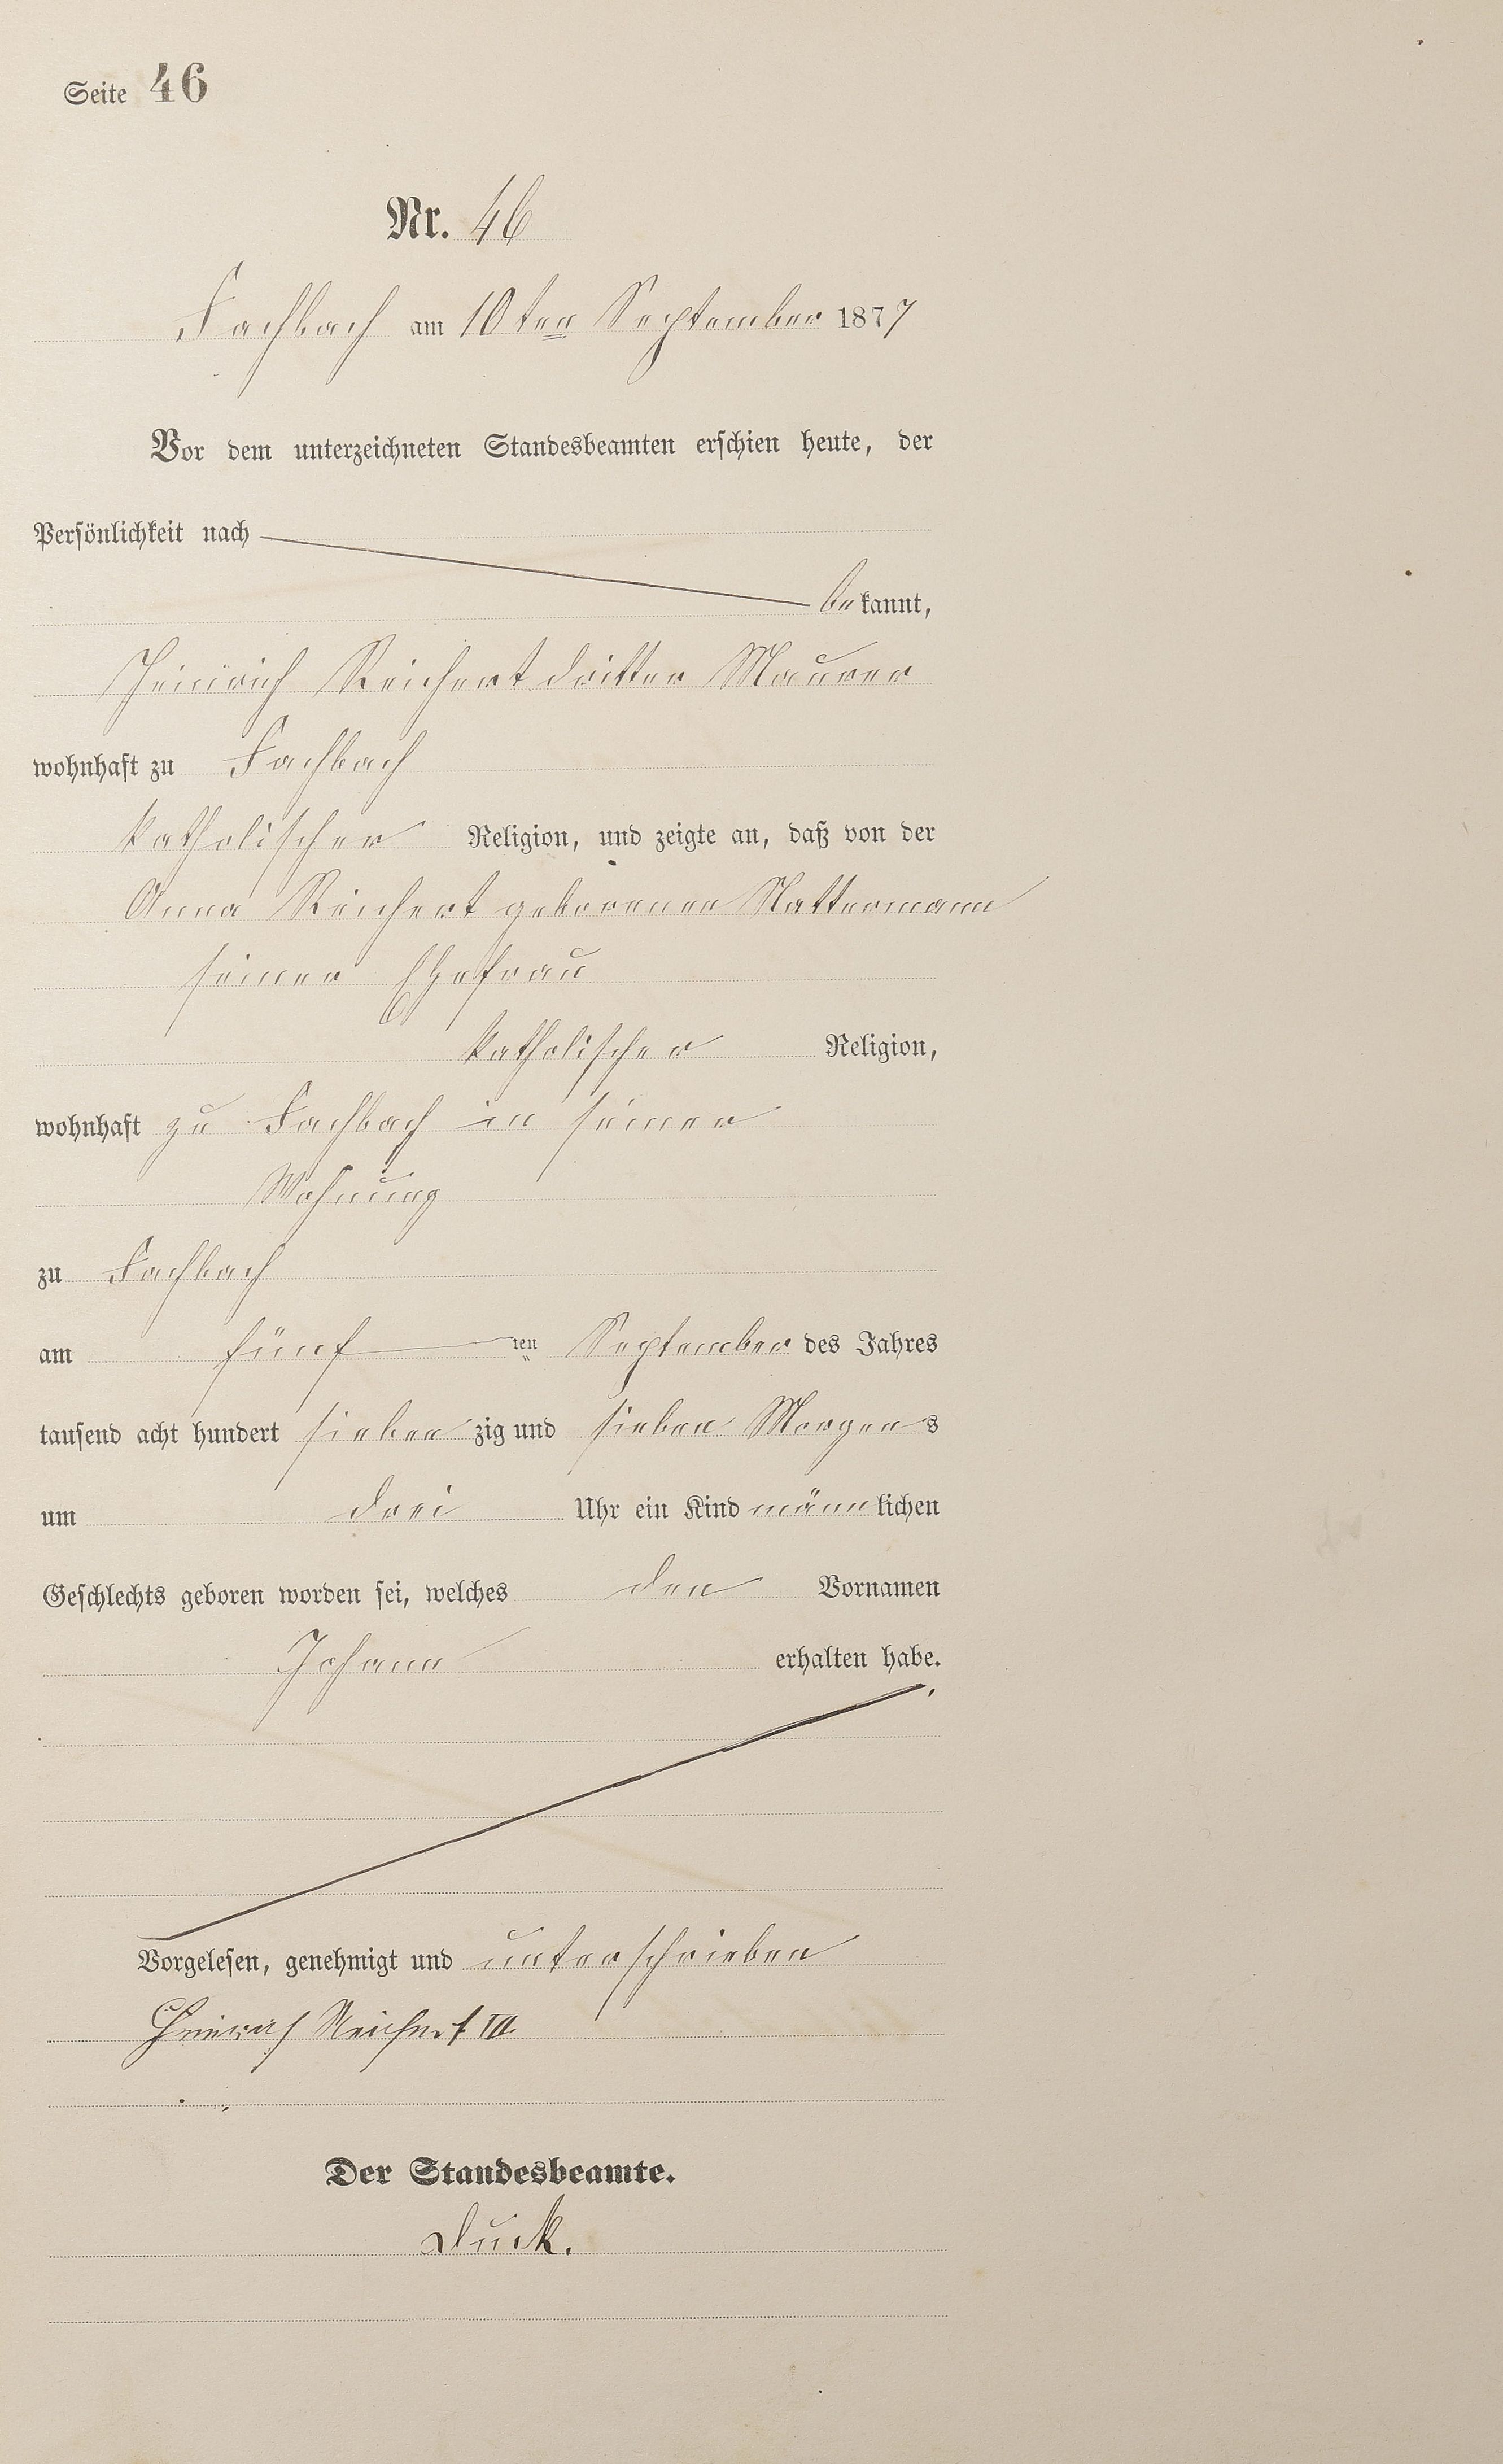 Seite 46
Nr. 46
Fachbach am 10ten September 1877
Vor dem unterzeichneten Standesbeamten erschien heute, der
Persönlichkeit nach
bekannt,
Heinrich Reichert dritter Maurer
wohnhaft zu Fachbach
katholischer Religion, und zeigte an, daß von der
Anna Reichert geborenen Nattermann
seiner Ehefrau
katholischer Religion,
wohnhaft zu Fachbach in seiner
Wohnung
zu Fachbach
am fünf ten September des Jahres
tausend acht hundert sieben zig und sieben Morgens
um drei Uhr ein Kind männlichen
Geschlechts geboren worden sei, welches den Vornamen
Johann erhalten habe.
Vorgelesen, genehmigt und unterschrieben
Heinrich Reichert III.
Der Standesbeamte.
Duck.